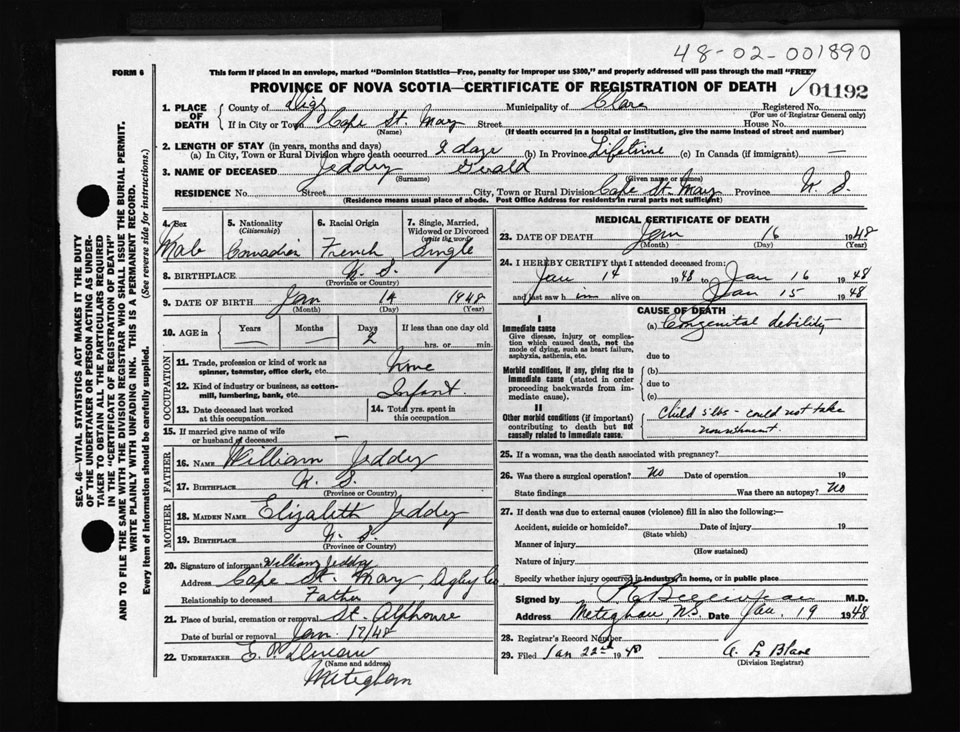 48-02-001890
FORM 6
This form if placed in an envelope, marked "Dominion Statistics—Free, penalty for improper use $300," and properly addressed will pass through the mail "FREE"
PROVINCE OF NOVA SCOTIA—CERTIFICATE OF REGISTRATION OF DEATH
01192
1. PLACE OF DEATH
County of Digby Municipality of Clare Registered No.
(For use of Registrar General only)
If in City or Town Cape St. Mary Street House No.
(Name) (If death occurred in a hospital or institution, give the name instead of street and number)
2. LENGTH OF STAY (in years, months and days)
(a) In City, Town or Rural Division where death occurred 2 days (b) In Province Lifetime (c) In Canada (if immigrant) —
3. NAME OF DECEASED Jeddry Gerald
(Surname) (Given name or names)
RESIDENCE No. Street City, Town or Rural Division Cape St. Mary Province N. S.
(Residence means usual place of abode. Post Office Address for residents in rural parts not sufficient)
4. Sex
Male
5. Nationality (Citizenship)
Canadian
6. Racial Origin
French
7. Single, Married, Widowed or Divorced (write the word)
Single
8. BIRTHPLACE N. S.
(Province or Country)
9. DATE OF BIRTH Jan 14 1948
(Month) (Day) (Year)
10. AGE in Years Months Days 2 If less than one day old
hrs. or min.
OCCUPATION
11. Trade, profession or kind of work as spinner, teamster, office clerk, etc. None
12. Kind of industry or business, as cotton-mill, lumbering, bank, etc. Infant
13. Date deceased last worked at this occupation
14. Total yrs. spent in this occupation
15. If married give name of wife or husband of deceased —
FATHER
16. NAME William Jeddry
17. BIRTHPLACE N. S.
(Province or Country)
MOTHER
18. MAIDEN NAME Elizabeth Jeddry
19. BIRTHPLACE N. S.
(Province or Country)
20. Signature of informant William Jeddry
Address Cape St. Mary, Digby Co
Relationship to deceased Father
21. Place of burial, cremation or removal St. Alphonse
Date of burial or removal Jan. 17/48
22. UNDERTAKER E. P.
(Name and address)
Meteghan
MEDICAL CERTIFICATE OF DEATH
23. DATE OF DEATH Jan 16 1948
(Month) (Day) (Year)
24. I HEREBY CERTIFY that I attended deceased from:
Jan 14 1948 to Jan 16 1948
and last saw h im alive on Jan 15 1948
CAUSE OF DEATH
I
Immediate cause
Give disease, injury or complication which caused death, not the mode of dying, such as heart failure, asphyxia, asthenia, etc.
(a) Congenital debility
due to
Morbid conditions, if any, giving rise to immediate cause (stated in order proceeding backwards from immediate cause).
(b)
due to
(c)
II
Other morbid conditions (if important) contributing to death but not causally related to immediate cause.
Child 5 lbs - could not take
nourishment.
25. If a woman, was the death associated with pregnancy?
26. Was there a surgical operation? No Date of operation 19
State findings Was there an autopsy? No
27. If death was due to external causes (violence) fill in also the following:—
Accident, suicide or homicide? Date of injury 19
(State which)
Manner of injury
(How sustained)
Nature of injury
Specify whether injury occurred in industry, in home, or in public place
Signed by M.D.
Address Meteghan, N.S. Date Jan. 19 1948
28. Registrar's Record Number
29. Filed Jan 22nd 1948
(Division Registrar)
SEC. 46—VITAL STATISTICS ACT MAKES IT THE DUTY
OF THE UNDERTAKER OR PERSON ACTING AS UNDER-
TAKER TO OBTAIN ALL THE PARTICULARS REQUIRED
IN THE "CERTIFICATE OF REGISTRATION OF DEATH"
AND TO FILE THE SAME WITH THE DIVISION REGISTRAR WHO SHALL ISSUE THE BURIAL PERMIT.
WRITE PLAINLY WITH UNFADING INK. THIS IS A PERMANENT RECORD.
Every item of information should be carefully supplied. (See reverse side for instructions.)